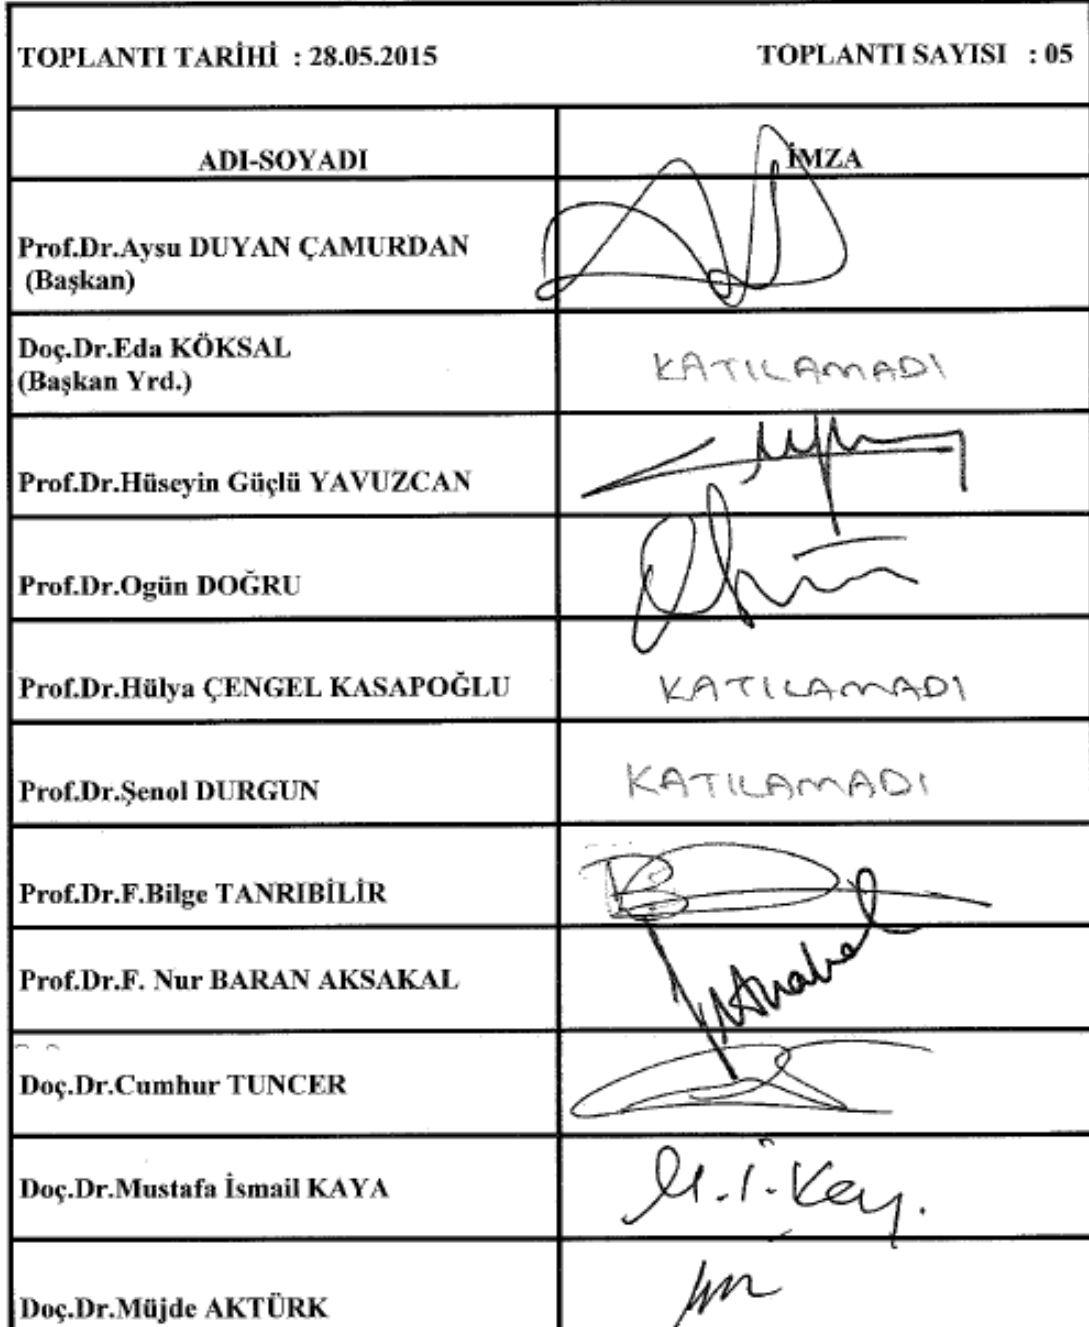 TOPLANTI TARİHİ : 28.05.2015 TOPLANTI SAYISI : 05
ADI-SOYADI İMZA
Prof.Dr.Aysu DUYAN ÇAMURDAN
(Başkan)
Doç.Dr.Eda KÖKSAL
(Başkan Yrd.)
KATILAMADI
Prof.Dr.Hüseyin Güçlü YAVUZCAN
Prof.Dr.Ogün DOĞRU
Prof.Dr.Hülya ÇENGEL KASAPOĞLU KATILAMADI
Prof.Dr.Şenol DURGUN KATILAMADI
Prof.Dr.F.Bilge TANRIBİLİR
Prof.Dr.F. Nur BARAN AKSAKAL
Doç.Dr.Cumhur TUNCER
Doç.Dr.Mustafa İsmail KAYA
Doç.Dr.Müjde AKTÜRK